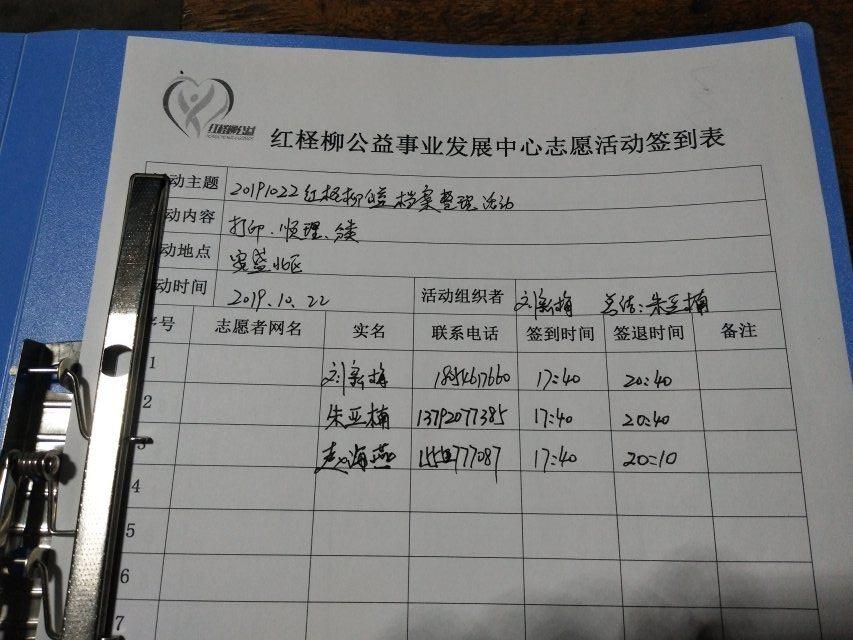 红柽柳公益
红柽柳公益事业发展中心志愿活动签到表
动主题 20191022红柽柳公益档案整理活动
动内容 打印、顺理、
动地点 安盛北区
动时间 2019.10.22 活动组织者 刘新梅 总结:朱亚楠
号 志愿者网名 实名 联系电话 签到时间 签退时间 备注
1 刘新梅 17:40 20:40
2 朱亚楠 13792077385 17:40 20:40
3 赵海燕 17:40 20:10
4
5
6
7